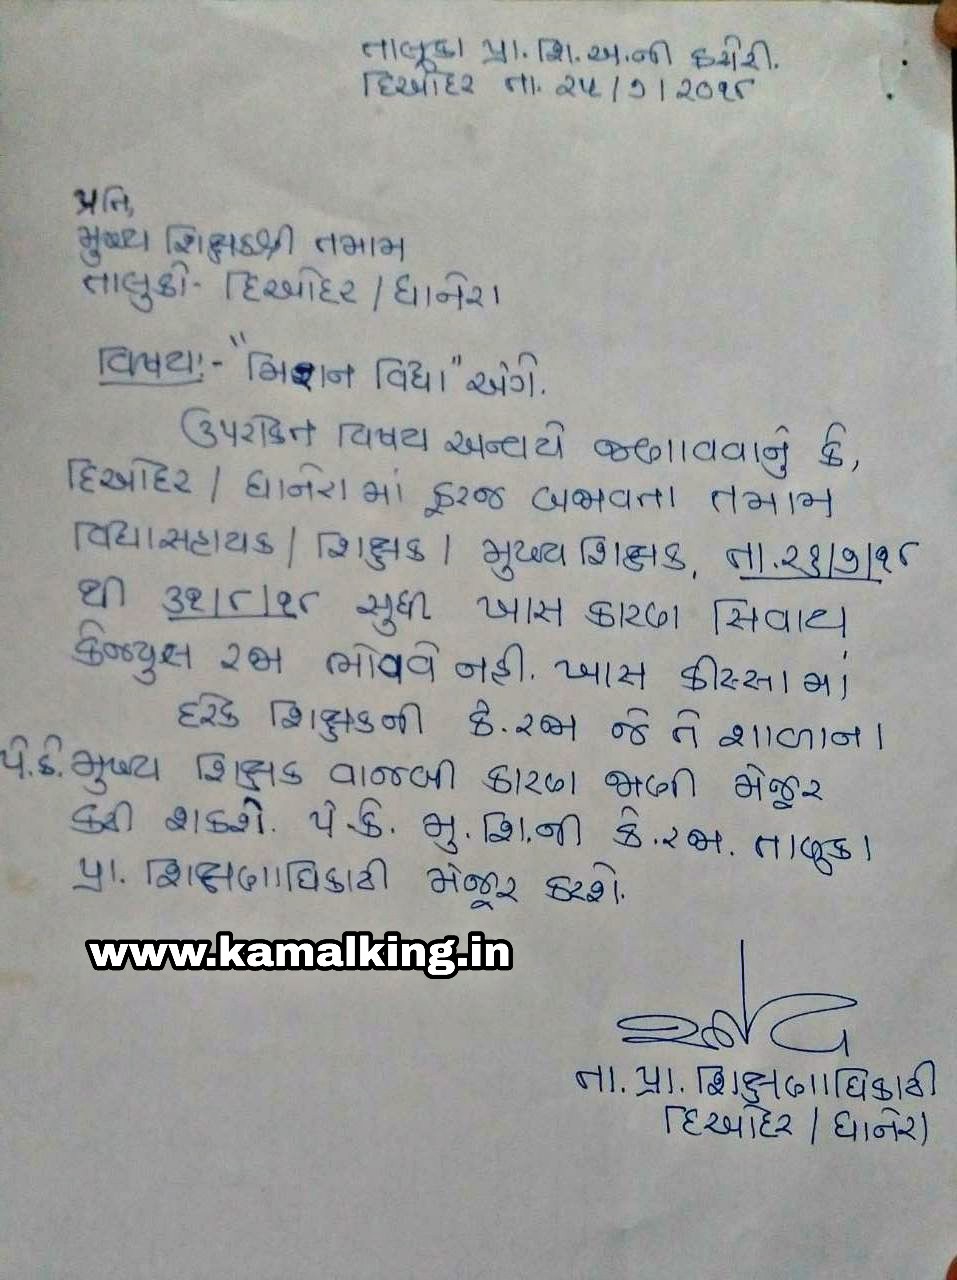 તાલૂકા પ્રા.શિ.અ.ની કચેરી.
દિઓદર તા. ૨૫/૭/૨૦૧૮
પ્રતિ,
મુખ્ય શિક્ષકશ્રી તમામ
તાલુકો- દિઓદર / ધાનેરા
વિષય:- "મિશન વિદ્યા" અંગે.
ઉપરોક્ત વિષય અન્વયે જણાવવાનું કે,
દિઓદર / ધાનેરામાં ફરજ બજાવતા તમામ
વિદ્યાસહાયક / શિક્ષક / મુખ્ય શિક્ષક, તા.૨૬/૭/૧૮
થી ૩૧/૮/૧૮ સુધી ખાસ કારણ સિવાય
કેજ્યુલ રજા ભોગવે નહી. ખાસ કીસ્સામાં
દરેક શિક્ષકની કે.રજા જે તે શાળાના
પે.કે.મુખ્ય શિક્ષક વાજબી કારણ જાણી મંજૂર
કરી શકશે. પે.કે. મુ.શિ.ની કે.રજા. તાલુકા
પ્રા. શિક્ષણાધિકારી મંજૂર કરશે.
www.kamalking.in
તા. પ્રા. શિક્ષણાધિકારી
દિઓદર / ધાનેરા